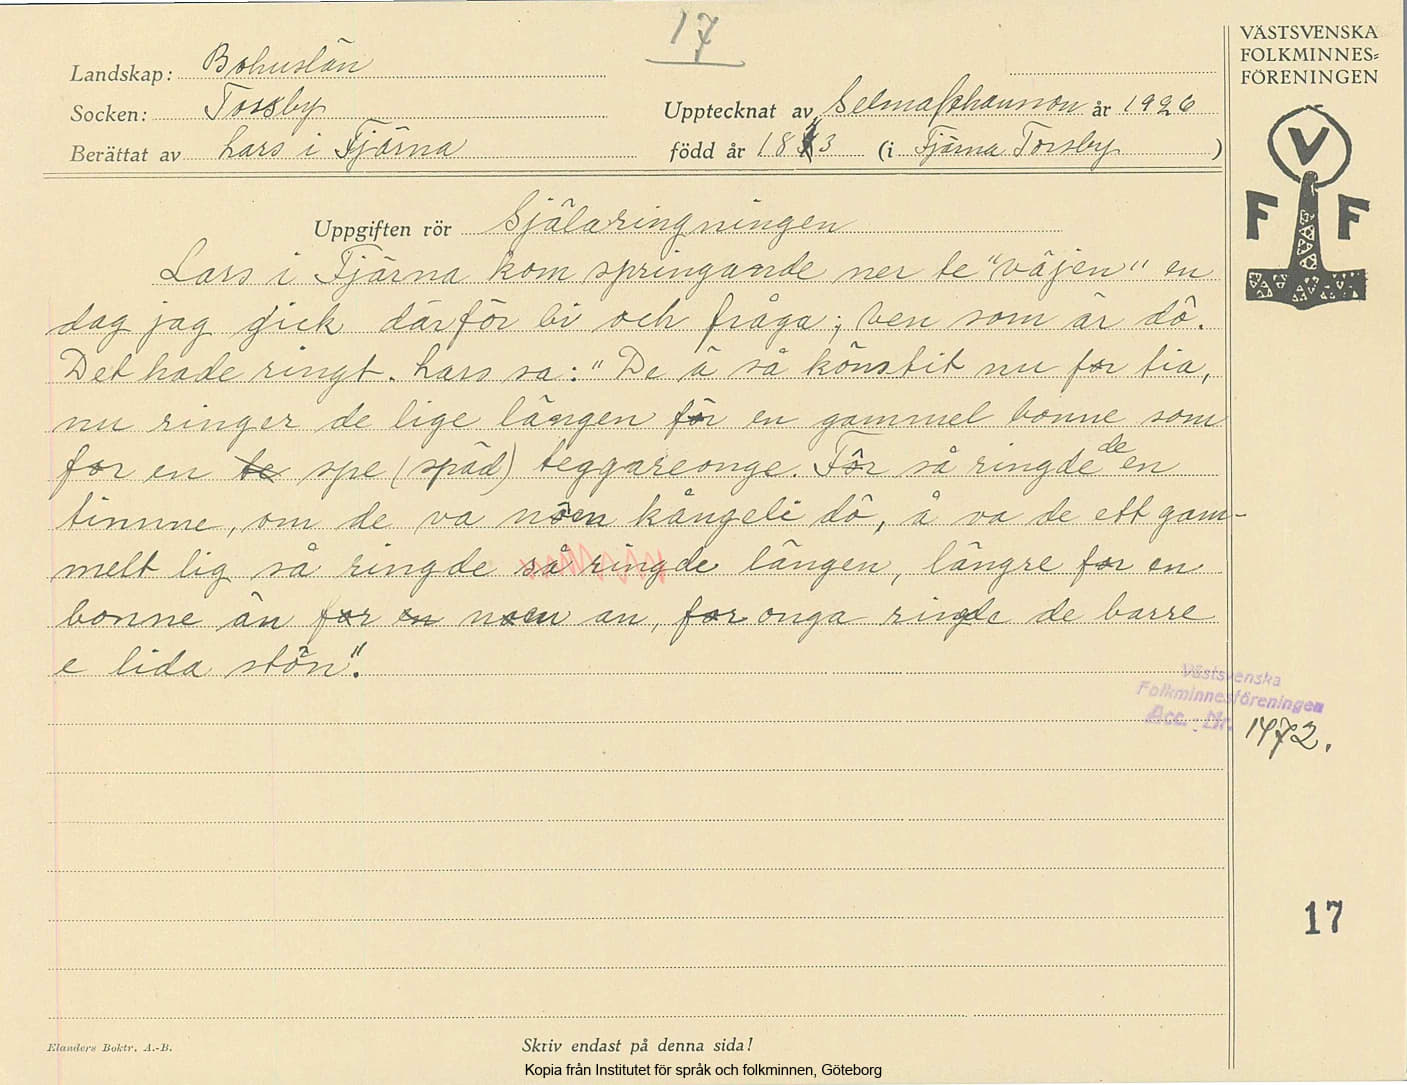 17
VÄSTSVENSKA
FOLKMINNES=
FÖRENINGEN
Landskap: Bohuslän
Socken: Torsby
Upptecknat av Selma Johansson år 1926
Berättat av Lars i Fjärna
född år 1813 (i Fjärna Torsby)
V
F F
Uppgiften rör Själaringningen
Lars i Fjärna kom springande ner te "väjen" en
dag jag gick därför bi och fråga; ven som är dö.
Det hade ringt. Lars sa: "De ä så könstit nu for tia,
nu ringer de lige längen för en gammel bonne som
for en spe (späd) teggareonge. För så ringde de en
timme, om de va nöen kångeli dö, å va de ett gam-
melt lig så ringde så ringde längen, längre for en
bonne än for en nöen an, for onga ringde de barre
e lida stön".
Västsvenska
Folkminnesföreningen
Acc. Nr. 1472.
17
Elanders Boktr. A.-B.
Skriv endast på denna sida!
Kopia från Institutet för språk och folkminnen, Göteborg